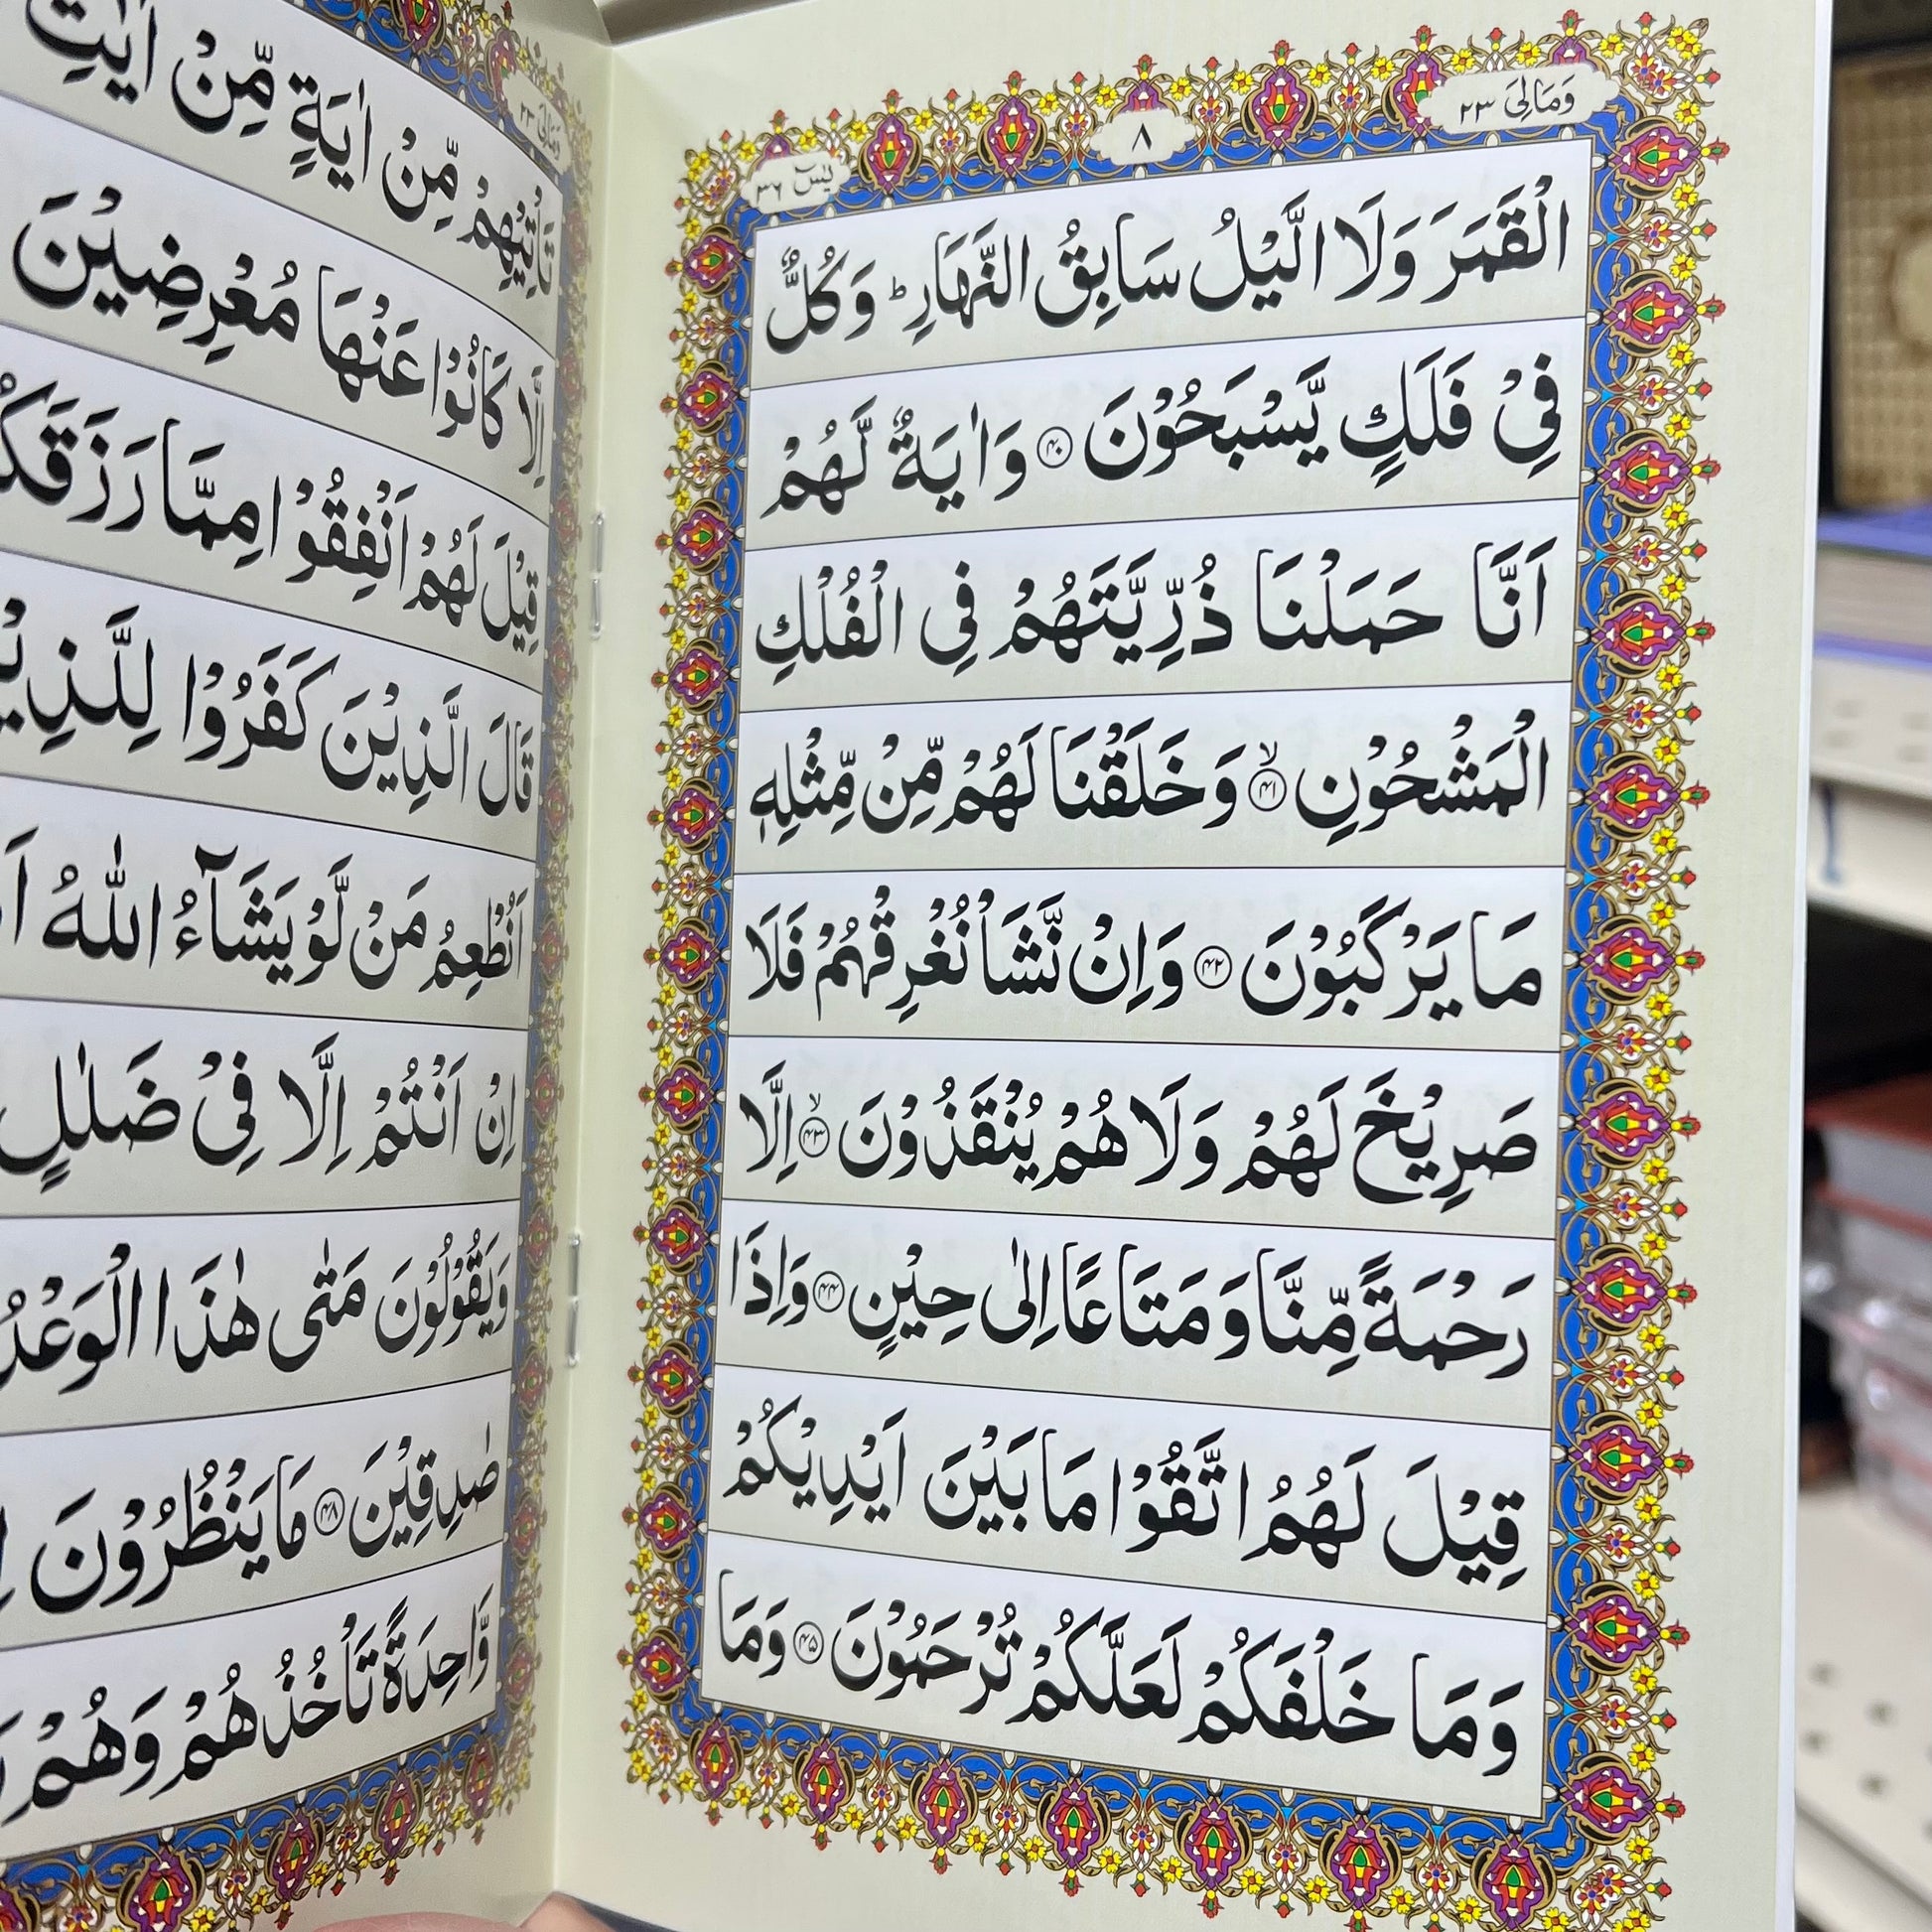 وَمَالِيَ ٢٣
٨
يٰسٓ ٣٦
الْقَمَرَ وَلَا الَّيْلُ سَابِقُ النَّهَارِ ؕ وَكُلٌّ
فِيْ فَلَكٍ يَّسْبَحُوْنَ ۴۰ وَاٰيَةٌ لَّهُمْ
اَنَّا حَمَلْنَا ذُرِّيَّتَهُمْ فِي الْفُلْكِ
الْمَشْحُوْنِ ۴۱ۙ وَخَلَقْنَا لَهُمْ مِّنْ مِّثْلِهٖ
مَا يَرْكَبُوْنَ ۴۲ وَاِنْ نَّشَاْ نُغْرِقْهُمْ فَلَا
صَرِيْخَ لَهُمْ وَلَا هُمْ يُنْقَذُوْنَ ۴۳ۙ اِلَّا
رَحْمَةً مِّنَّا وَمَتَاعًا اِلٰى حِيْنٍ ۴۴ وَاِذَا
قِيْلَ لَهُمُ اتَّقُوْا مَا بَيْنَ اَيْدِيْكُمْ
وَمَا خَلْفَكُمْ لَعَلَّكُمْ تُرْحَمُوْنَ ۴۵ وَمَا
وَمَالِيَ ٢٣
تَاْتِيْهِمْ مِّنْ اٰيَةٍ مِّنْ اٰيٰتِ
اِلَّا كَانُوْا عَنْهَا مُعْرِضِيْنَ
قِيْلَ لَهُمْ اَنْفِقُوْا مِمَّا رَزَقَكُ
قَالَ الَّذِيْنَ كَفَرُوْا لِلَّذِيْ
اَنُطْعِمُ مَنْ لَّوْ يَشَآءُ اللّٰهُ اَ
اِنْ اَنْتُمْ اِلَّا فِيْ ضَلٰلٍ
وَيَقُوْلُوْنَ مَتٰى هٰذَا الْوَعْدُ
صٰدِقِيْنَ ۴۸ مَا يَنْظُرُوْنَ
وَّاحِدَةً تَاْخُذُهُمْ وَهُمْ